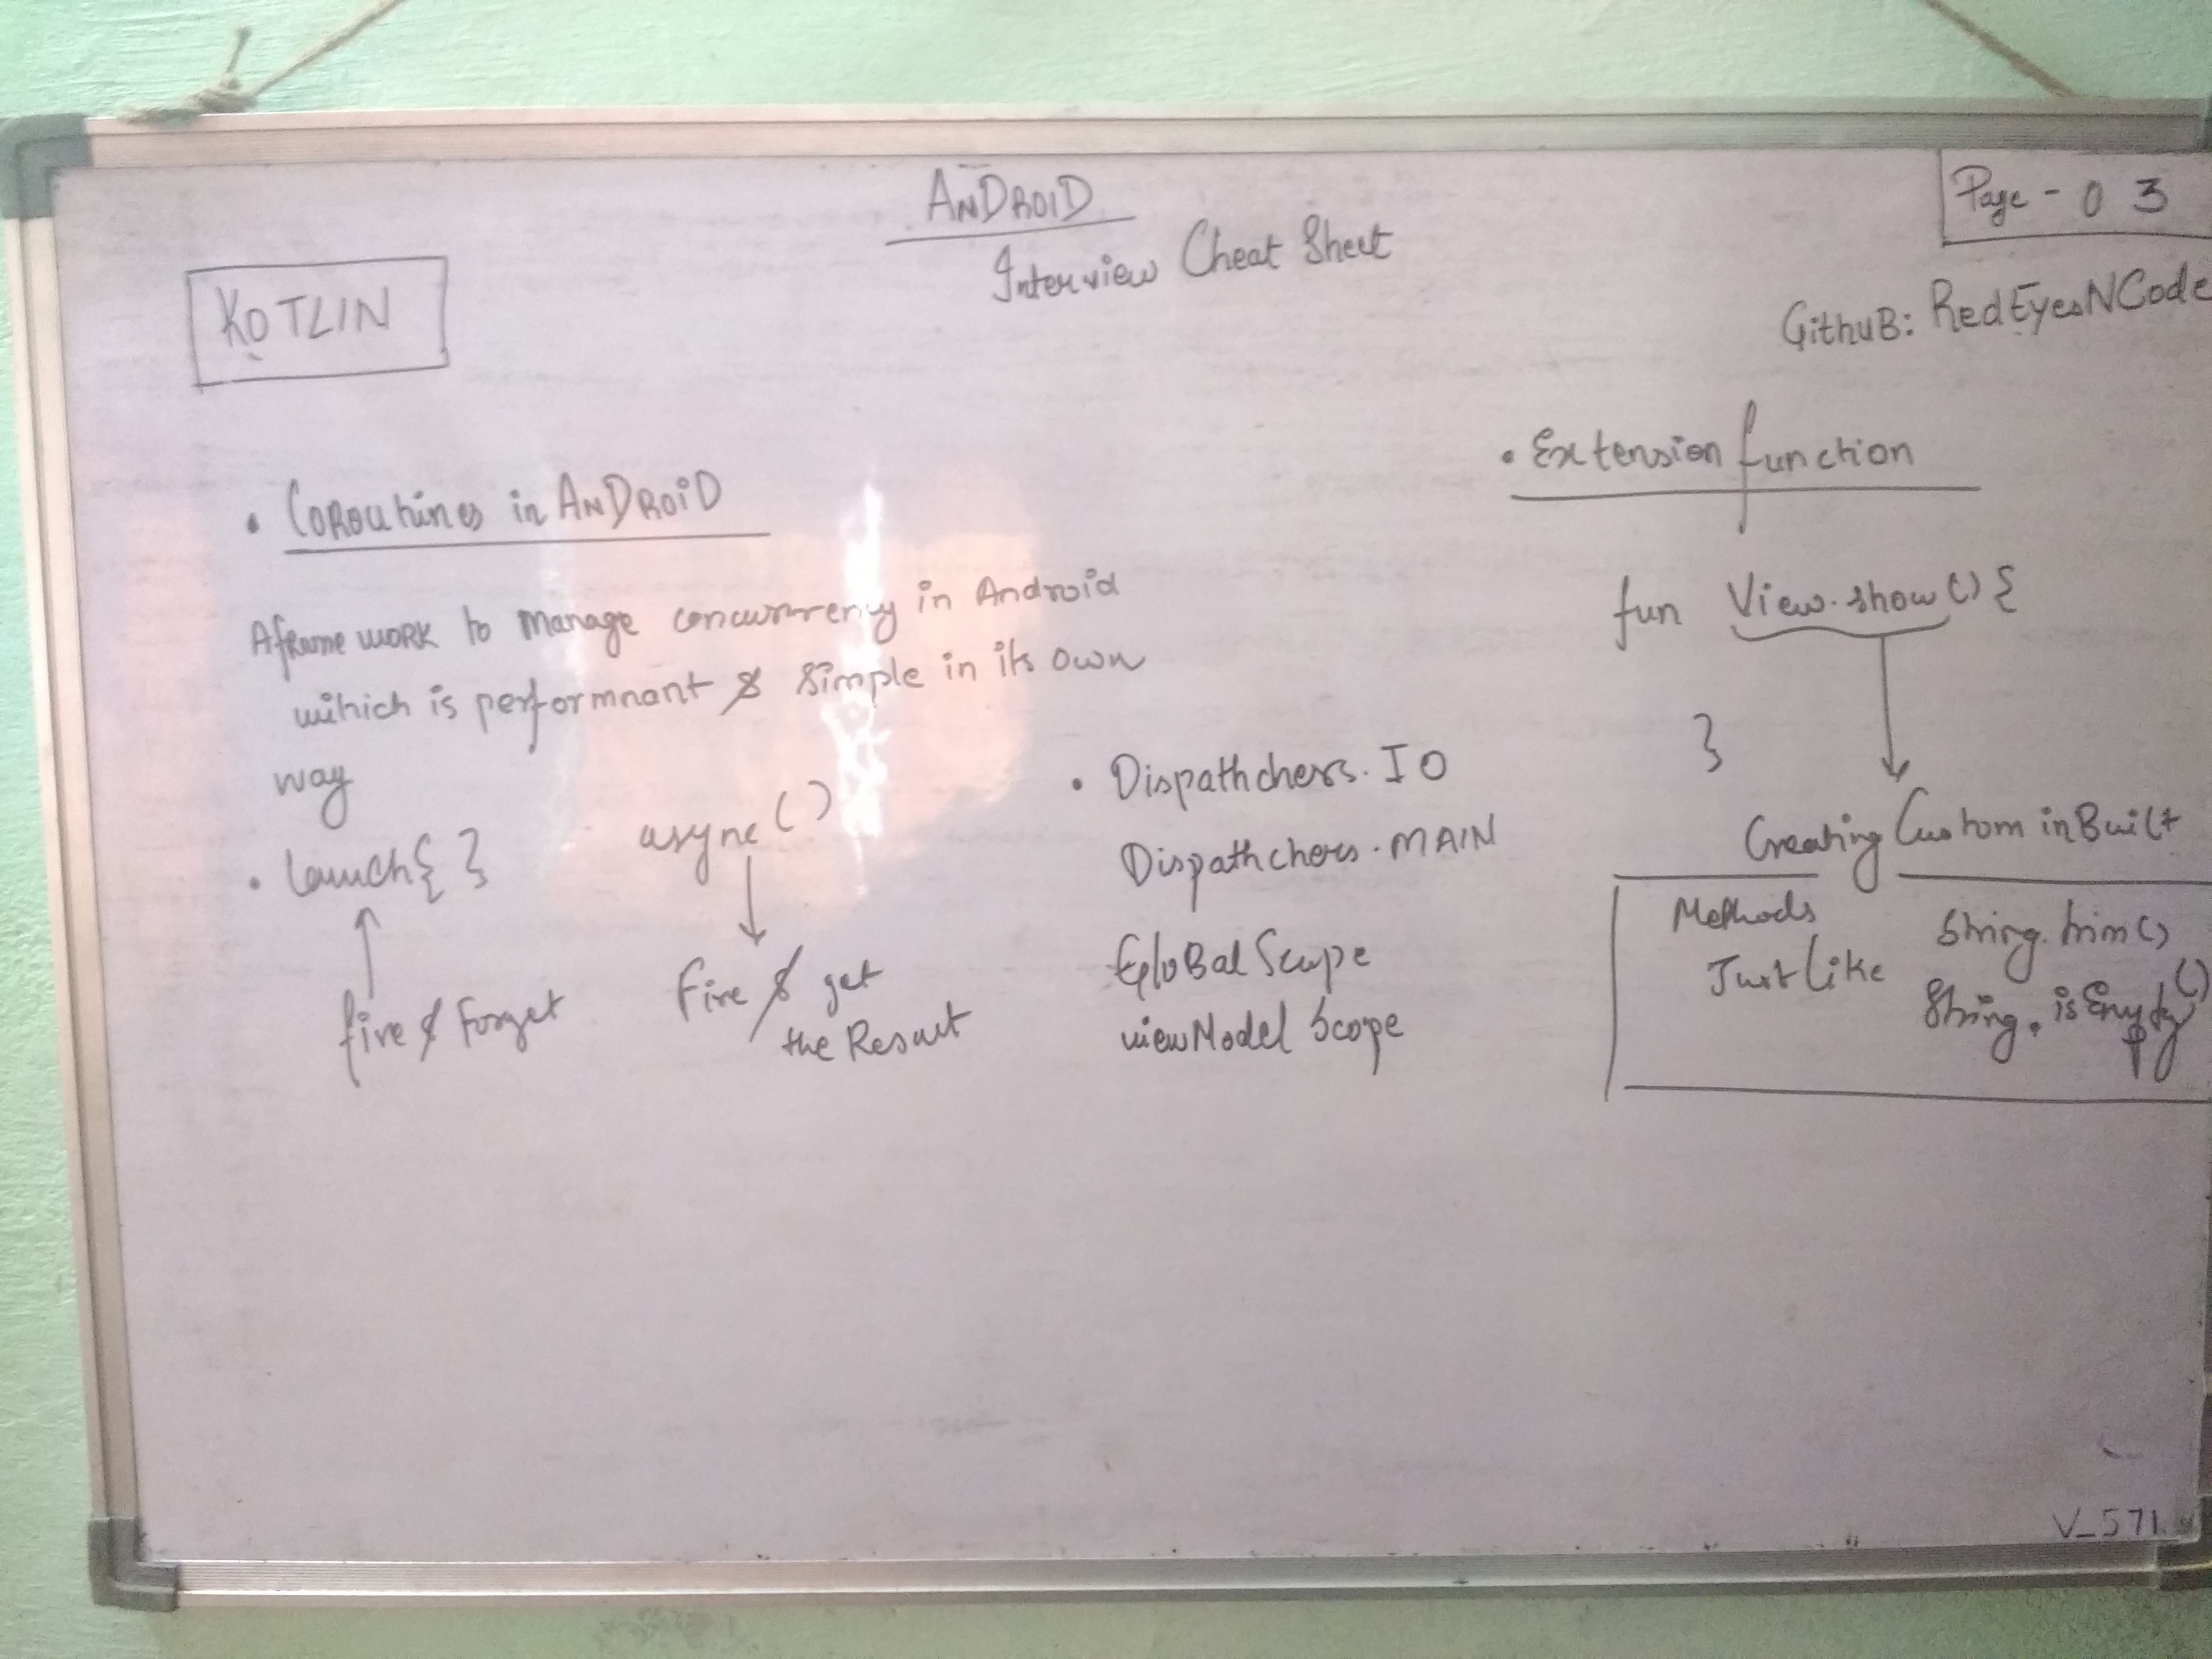 ANDROID
Interview Cheat Sheet
Page - 03
GithuB: RedEyesNCode
KOTLIN
• COROutines in ANDROiD
A frame WORK to manage concurrency in Android
which is performnant & simple in its own
way
• launch{ }
fire & Forget
async ()
Fire & get
the Result
• Dispathchers. IO
Dispathchers. MAIN
GloBal Scope
viewModel Scope
• Extension function
fun View.show() {
}
Creating Custom inBuilt
Methods
Just like
String.trim()
String.isEmpty()
V_571